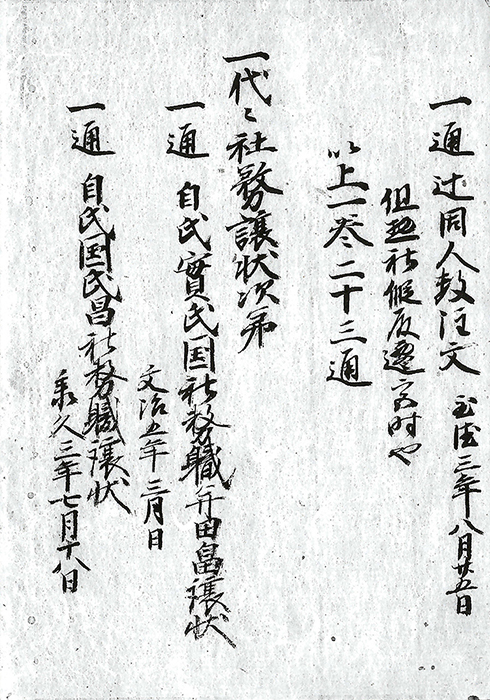 一通 辻固人数注文 至徳三年八月廿五日
但 社假殿遷宮时也
以上一巻二十三通
一代々社務譲状次第
一通 自氏實氏国社務職并田畠譲状
文治五年三月日
一通 自氏国氏昌社務職譲状
承久三年七月十八日